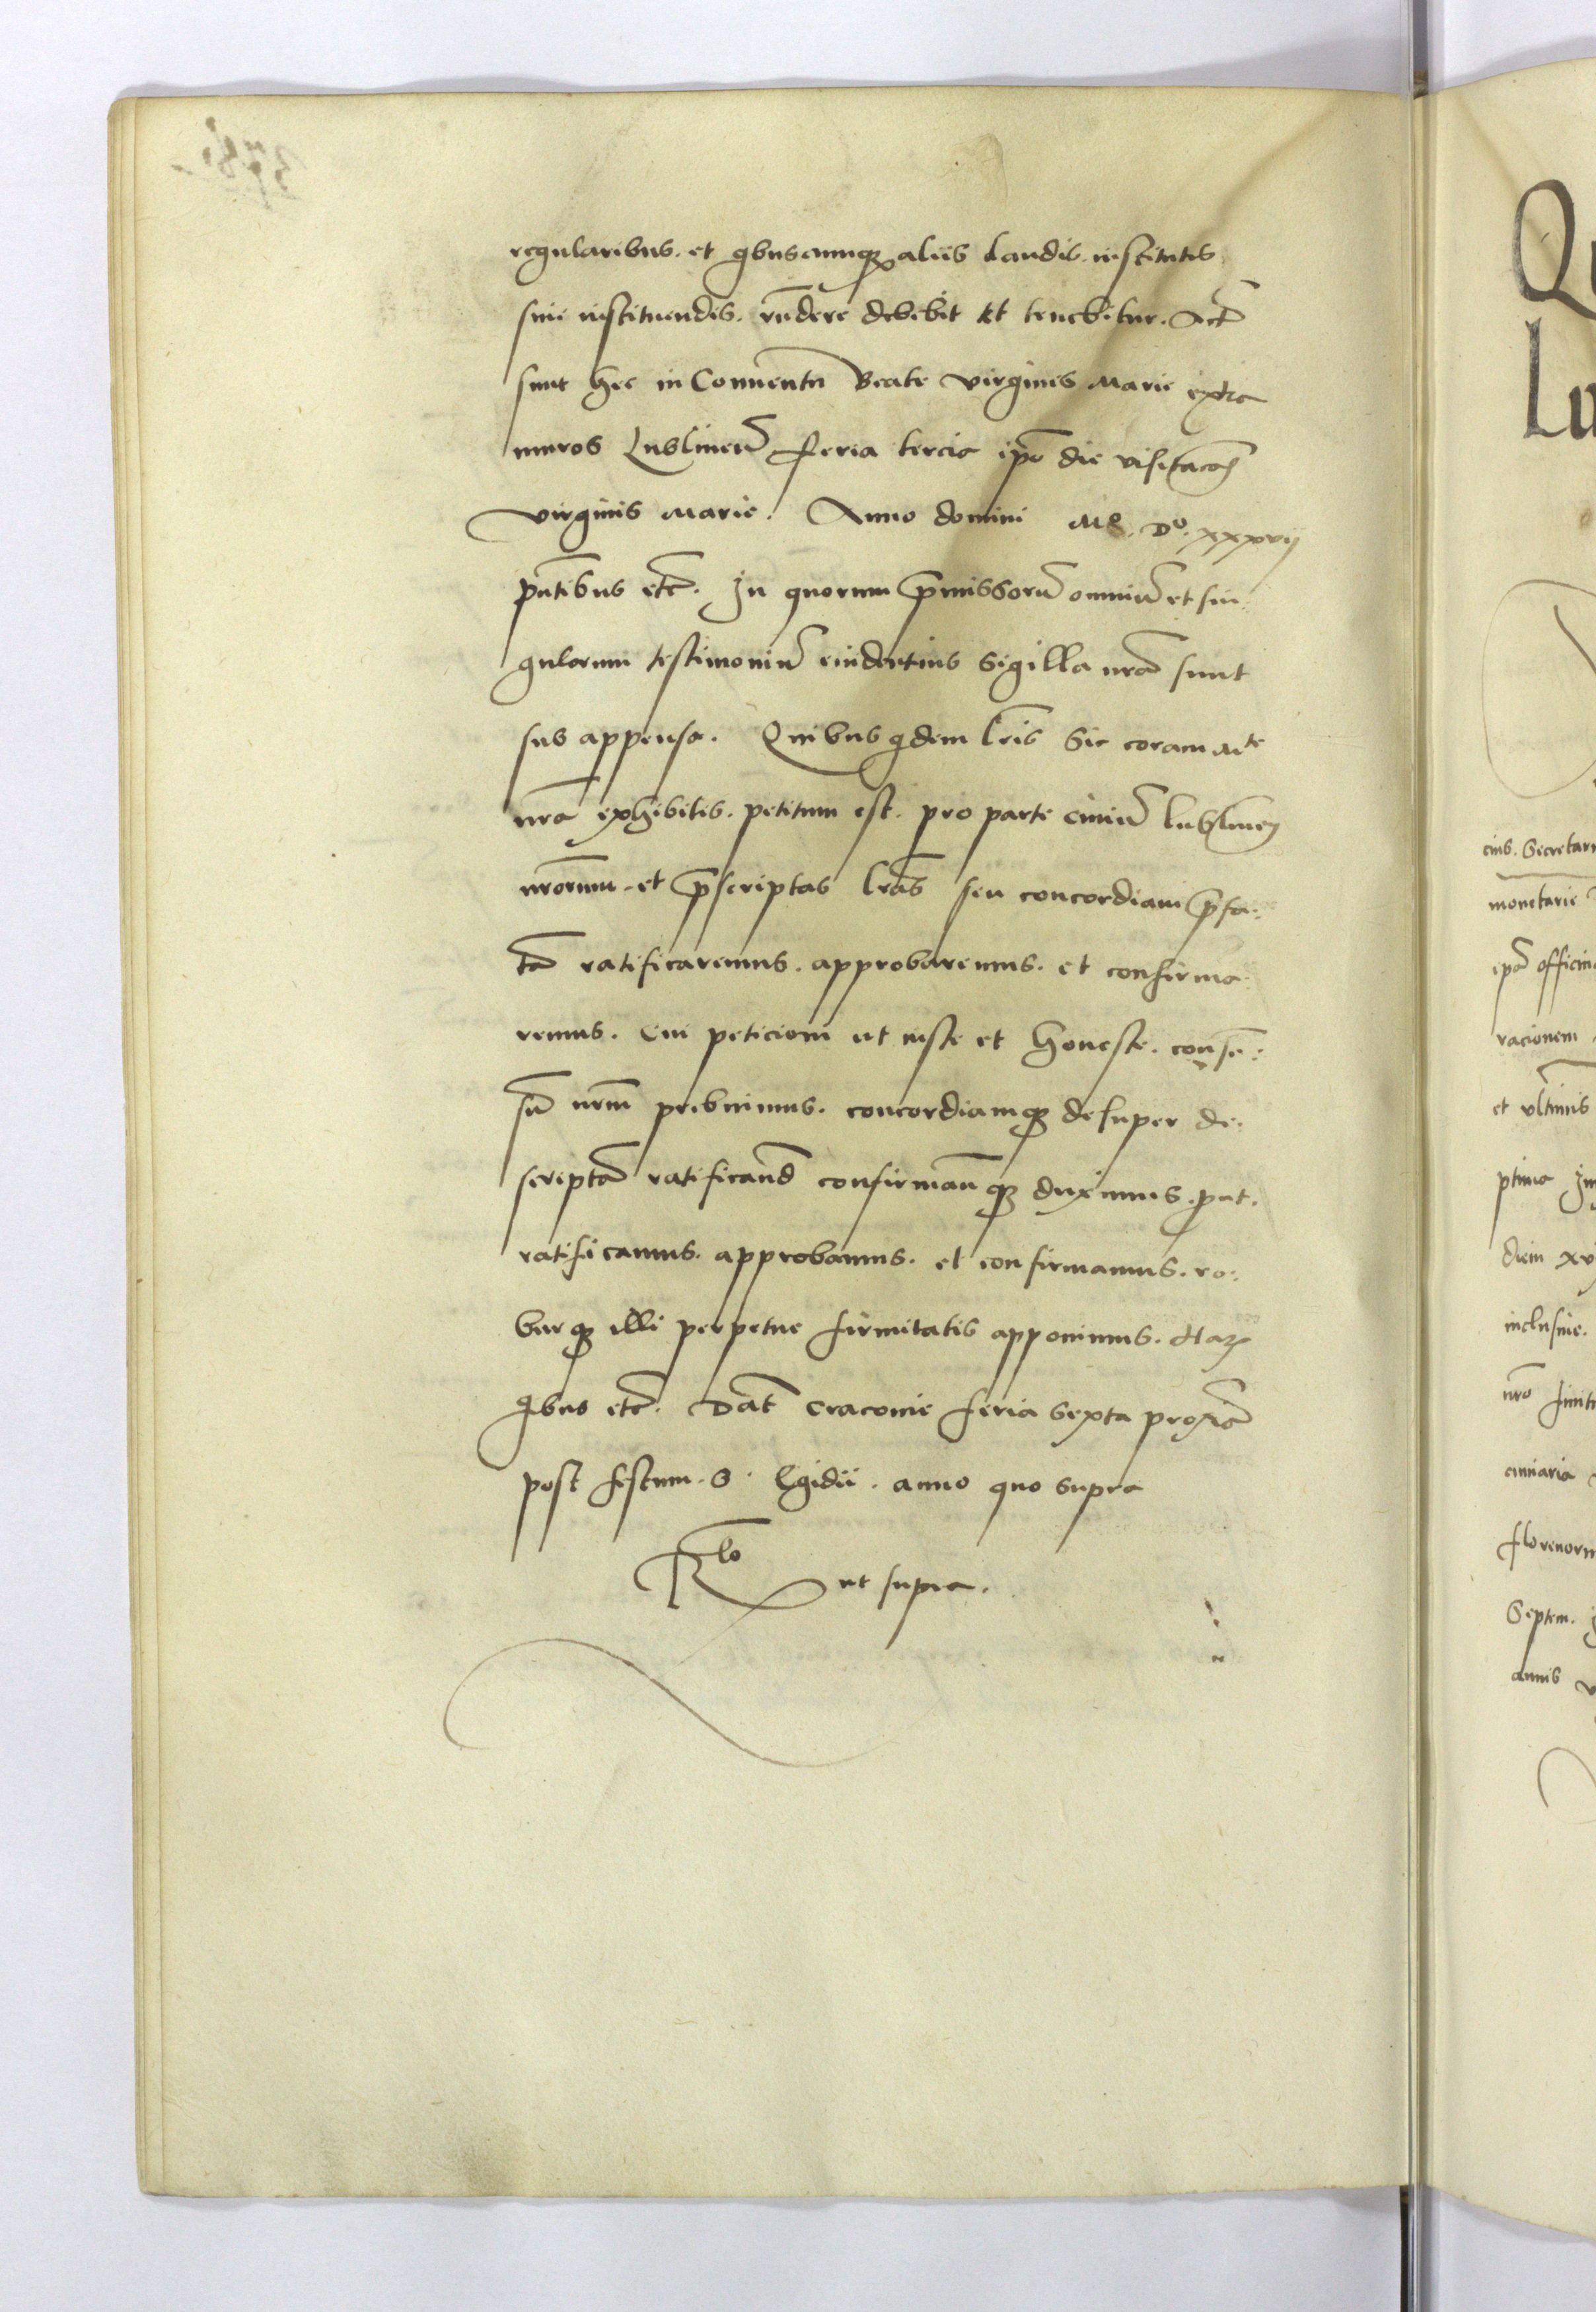 regularibus. et qbuscumqȝ aliis laudis. institutis
siue instituendis. rñdere debebit et tenebitur. Act̃
sunt hec in Conuentu Beate virginis Marie extra
muros Lublineñ feria tercia ipo die visitacoñ
virginis Marie. Anno domini Mo. Do. xxxvij
pñtibus etc̃. In quorum p̃missorũ omniũ et sin:
gulorum testimoniũ euidentius sigilla nr̃a sunt
sub appensa. Quibus qdem lr̃is sic coram Mte
nr̃a exhibitis. petitum est. pro parte ciuiũ lublineñ
nr̃orum. et p̃scriptas lr̃as seu concordiam p̃fa:
tã ratificaremus. approbaremus. et confirma:
remus. Cui peticioni ut iuste et honeste. consen:
sũ nr̃m prebuimus. concordiamqȝ desuper de:
scriptã ratificand̃ confirmañqȝ duximus. put.
ratificamus. approbamus. et confirmamus. ro:
burqȝ illi perpetue firmitatis apponimus. Harȝ
qbus etc̃. Dat̃ Cracouie feria sexta proxiã
post festum. S. Egidii. anno quo supra
Rlo ut supra.
Qu
Lu
cius. Secretari
monetarie
ipã officin
racionem
et vltimis
ptima
diem xv
inclusiue.
nr̃o finit
cimiaria
florenoru
Septem.
annis